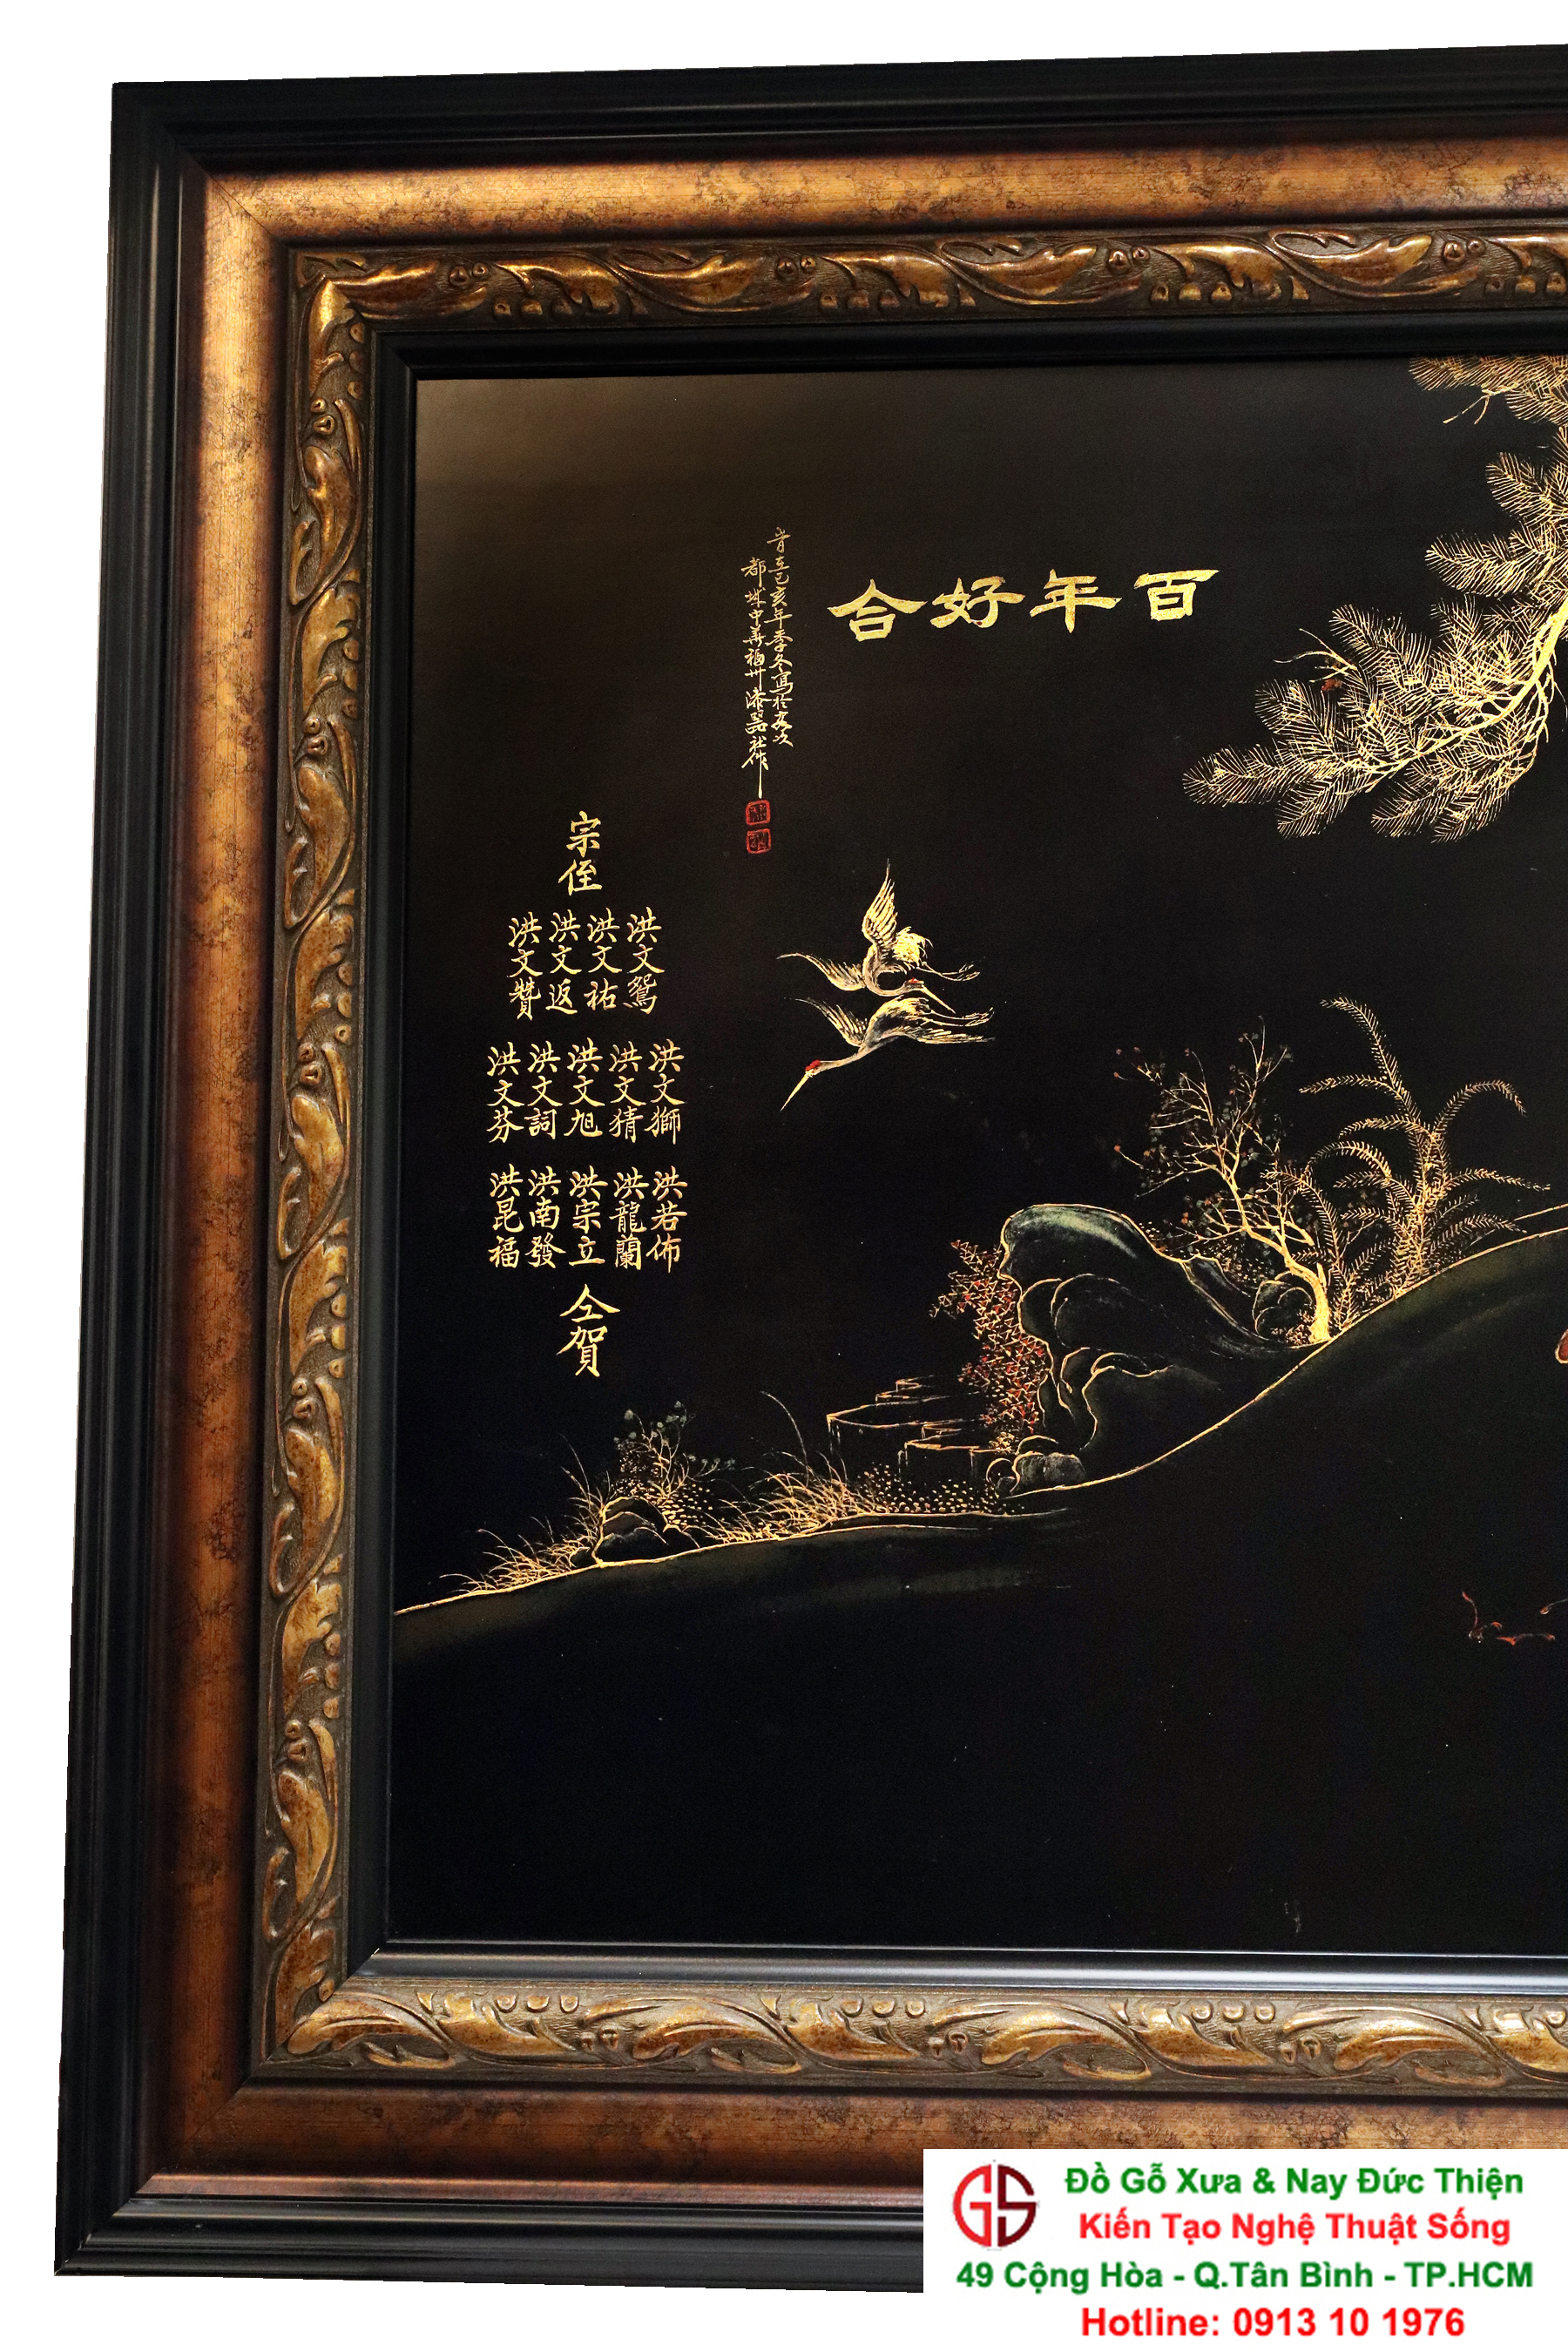 百年好合
旹在己亥年季冬寫於
都城中華福州漆器社作
宗侄
洪文鴛
洪文祐
洪文返
洪文贊
洪文獅
洪文猜
洪文旭
洪文詞
洪文芬
洪若佈
洪龍蘭
洪宗立
洪南發
洪昆福
仝賀
GS
Đồ Gỗ Xưa & Nay Đức Thiện
Kiến Tạo Nghệ Thuật Sống
49 Cộng Hòa - Q.Tân Bình - TP.HCM
Hotline: 0913 10 1976